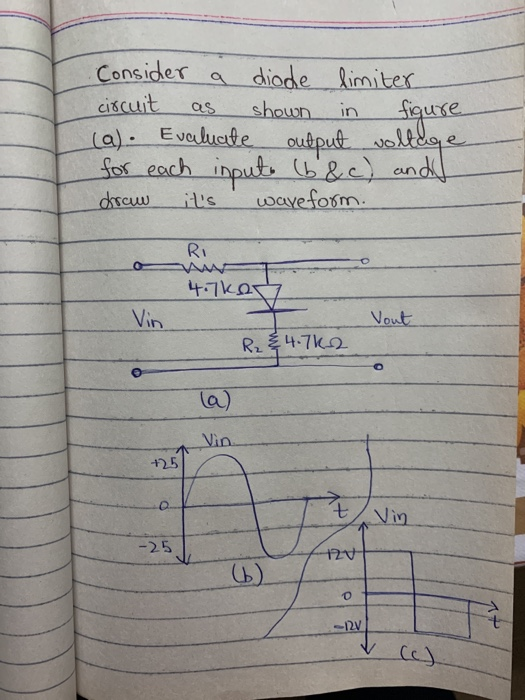 Consider a diode limiter
circuit as shown in figure
(a). Evaluate output voltage
for each input. (b & c) and
draw it's waveform.
R1
4.7kΩ
Vin
Vout
R2 4.7kΩ
(a)
Vin
+25
0
t
-25
(b)
Vin
12V
0
t
-12V
(c)